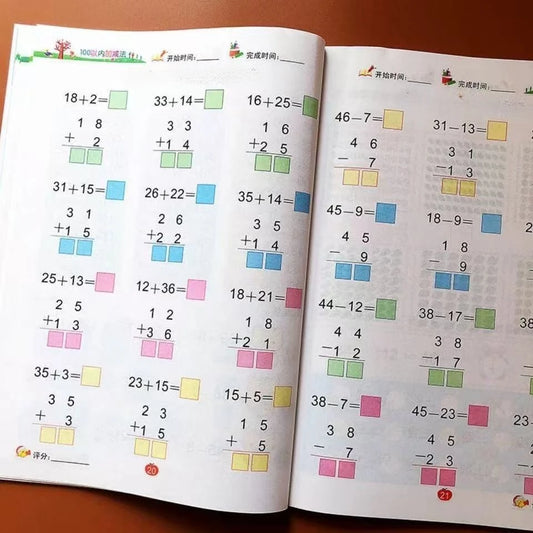 100以内加减法
开始时间:
完成时间:
18+2=
33+14=
16+25=
1 8
+ 2
3 3
+1 4
1 6
+2 5
31+15=
26+22=
35+14=
3 1
+1 5
2 6
+2 2
3 5
+1 4
25+13=
12+36=
18+21=
2 5
+1 3
1 2
+3 6
1 8
+2 1
35+3=
23+15=
15+5=
3 5
+ 3
2 3
+ 1 5
1 5
+ 5
评分:
20
开始时间:
完成时间:
46-7=
31-13=
4 6
- 7
3 1
-1 3
45-9=
18-9=
4 5
- 9
1 8
- 9
44-12=
38-17=
4 4
-1 2
3 8
-1 7
38-7=
45-23=
3 8
- 7
4 5
-2 3
21